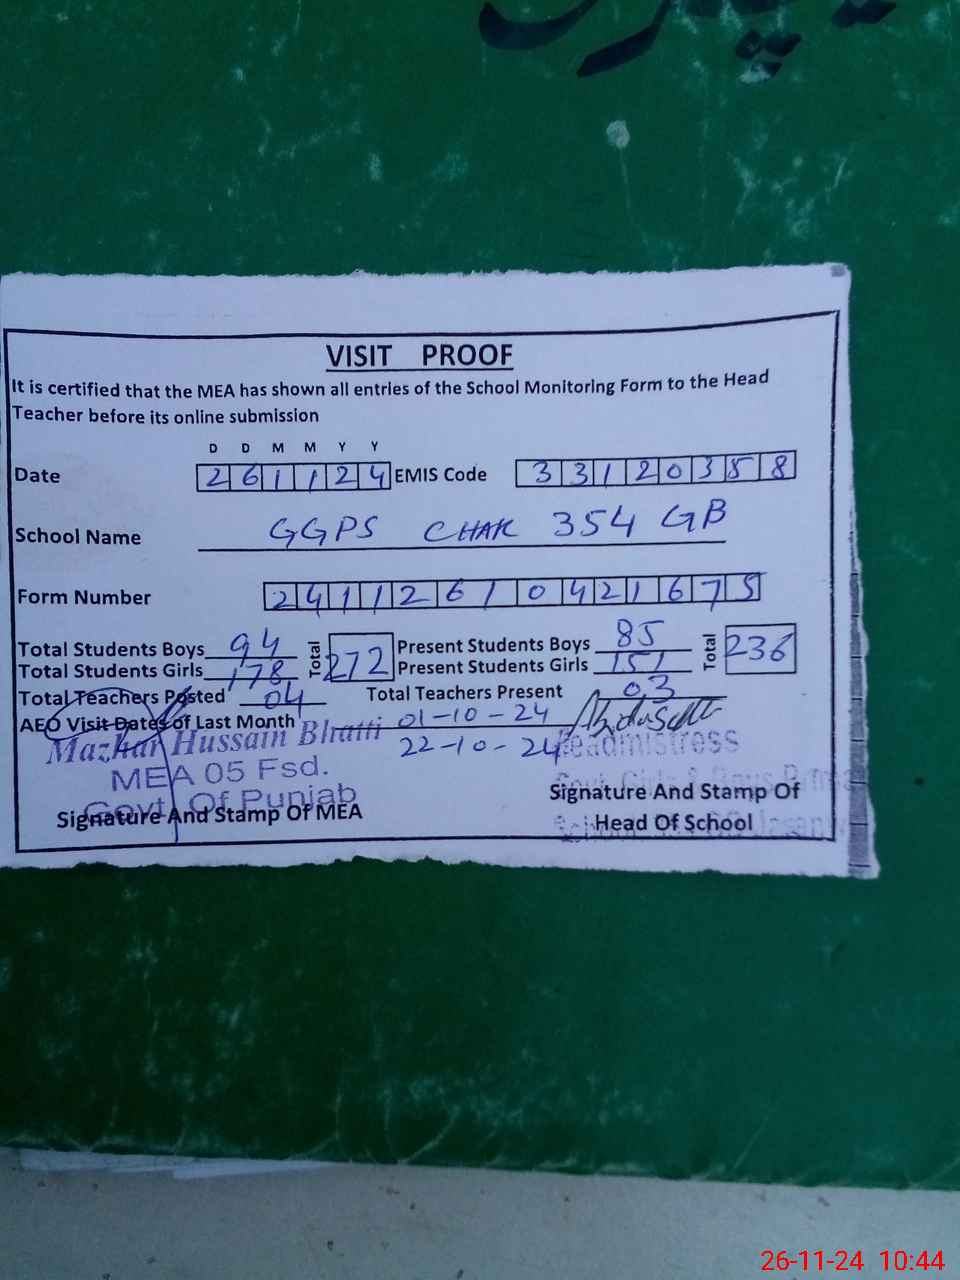 VISIT PROOF
It is certified that the MEA has shown all entries of the School Monitoring Form to the Head
Teacher before its online submission
D D M M Y Y
Date 261124 EMIS Code 33120358
School Name GGPS CHAK 354 GB
Form Number 24112610421675
Total Students Boys 94 Total 272 Present Students Boys 85 Total 236
Total Students Girls 178 Present Students Girls 151
Total Teachers Posted 04 Total Teachers Present 03
AEO Visit Dates of Last Month 01-10-24
22-10-24
Mazhar Hussain Bhatti
MEA 05 Fsd.
Govt. Of Punjab
Signature And Stamp Of MEA
Headmistress
Govt. Girls
Signature And Stamp Of
Head Of School
26-11-24 10:44